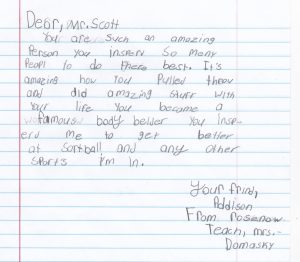 Dear, Mr. Scott
You are such an amazing
Person you insperv so meny
Peopl to do there best. It's
amazing how you Pulled threw
and did amazing sturr with
Your life You became a
famouse body belder You insp-
erd me to get better
at Sortball and any other
Sports I'm in.
Your frind,
Addison
From rosenow
Teach, mrs.-
Domasky